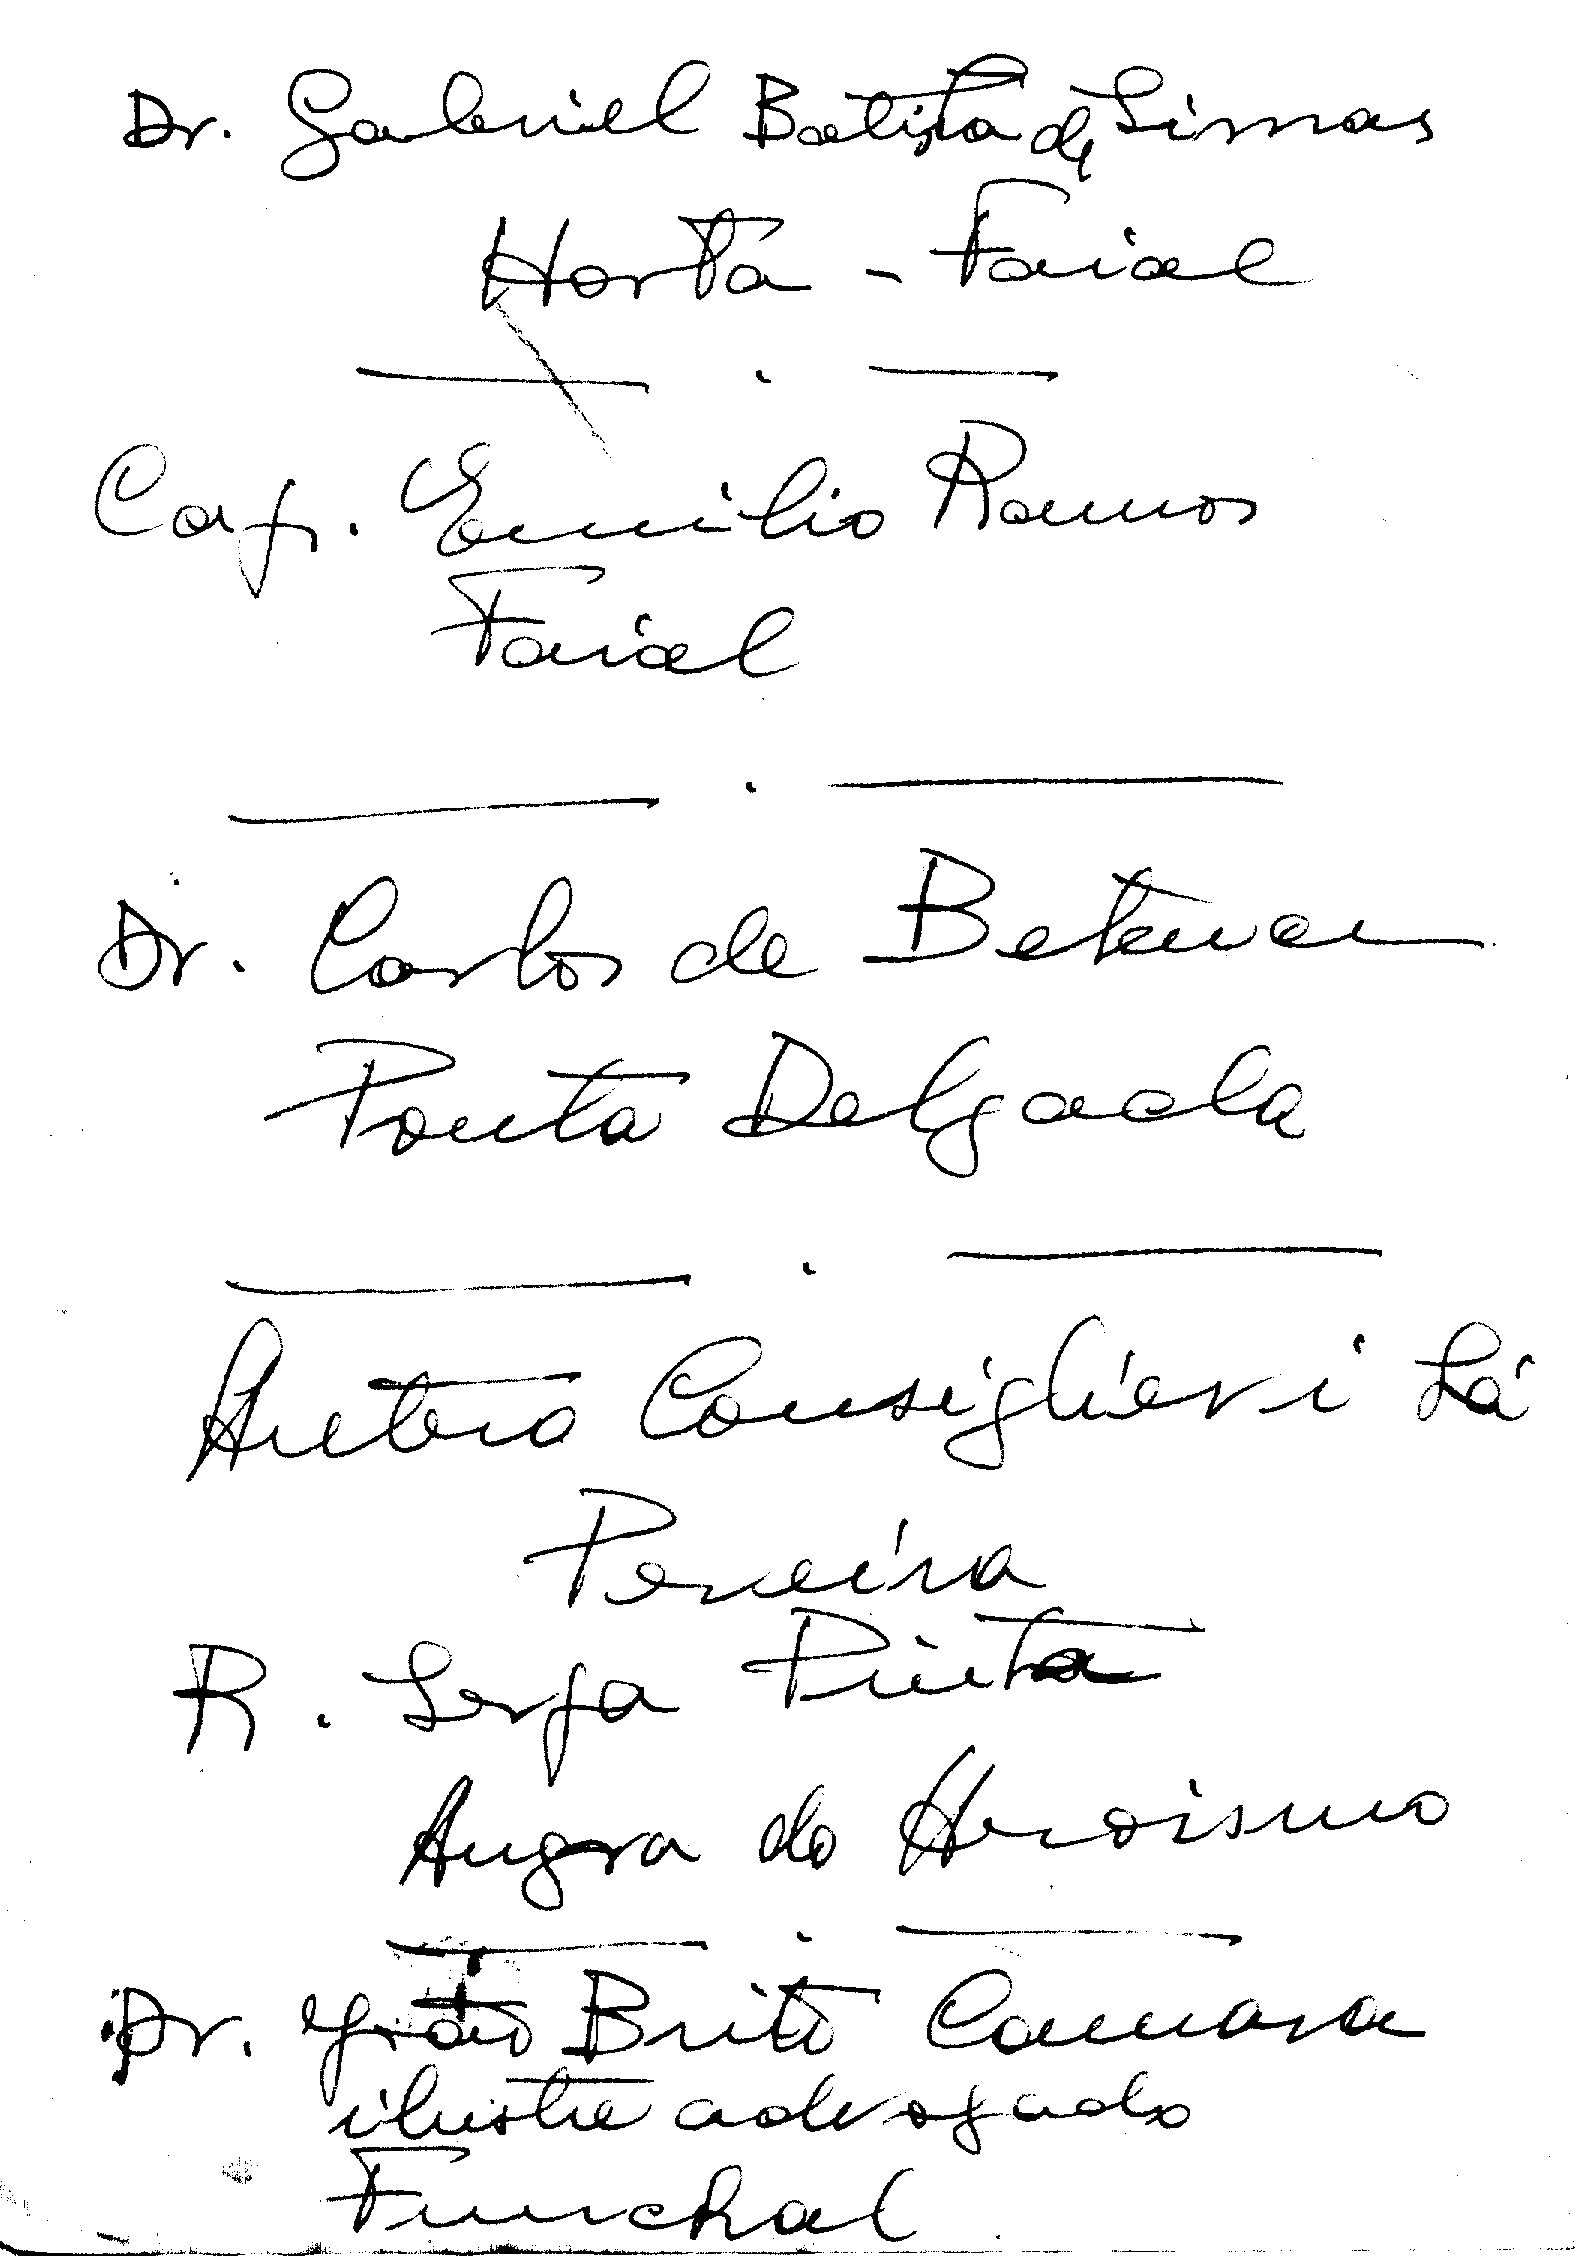 Dr. Gabriel Batista de Simas
Horta - Faial
Cap. Emilio Ramos
Faial
Dr. Carlos de Betencou
Ponta Delgada
Antero Consiglieri Sá
Pereira
R. Serpa Pinto
Angra do Heroismo
Dr. João Brito Camara
ilustre advogado
Funchal